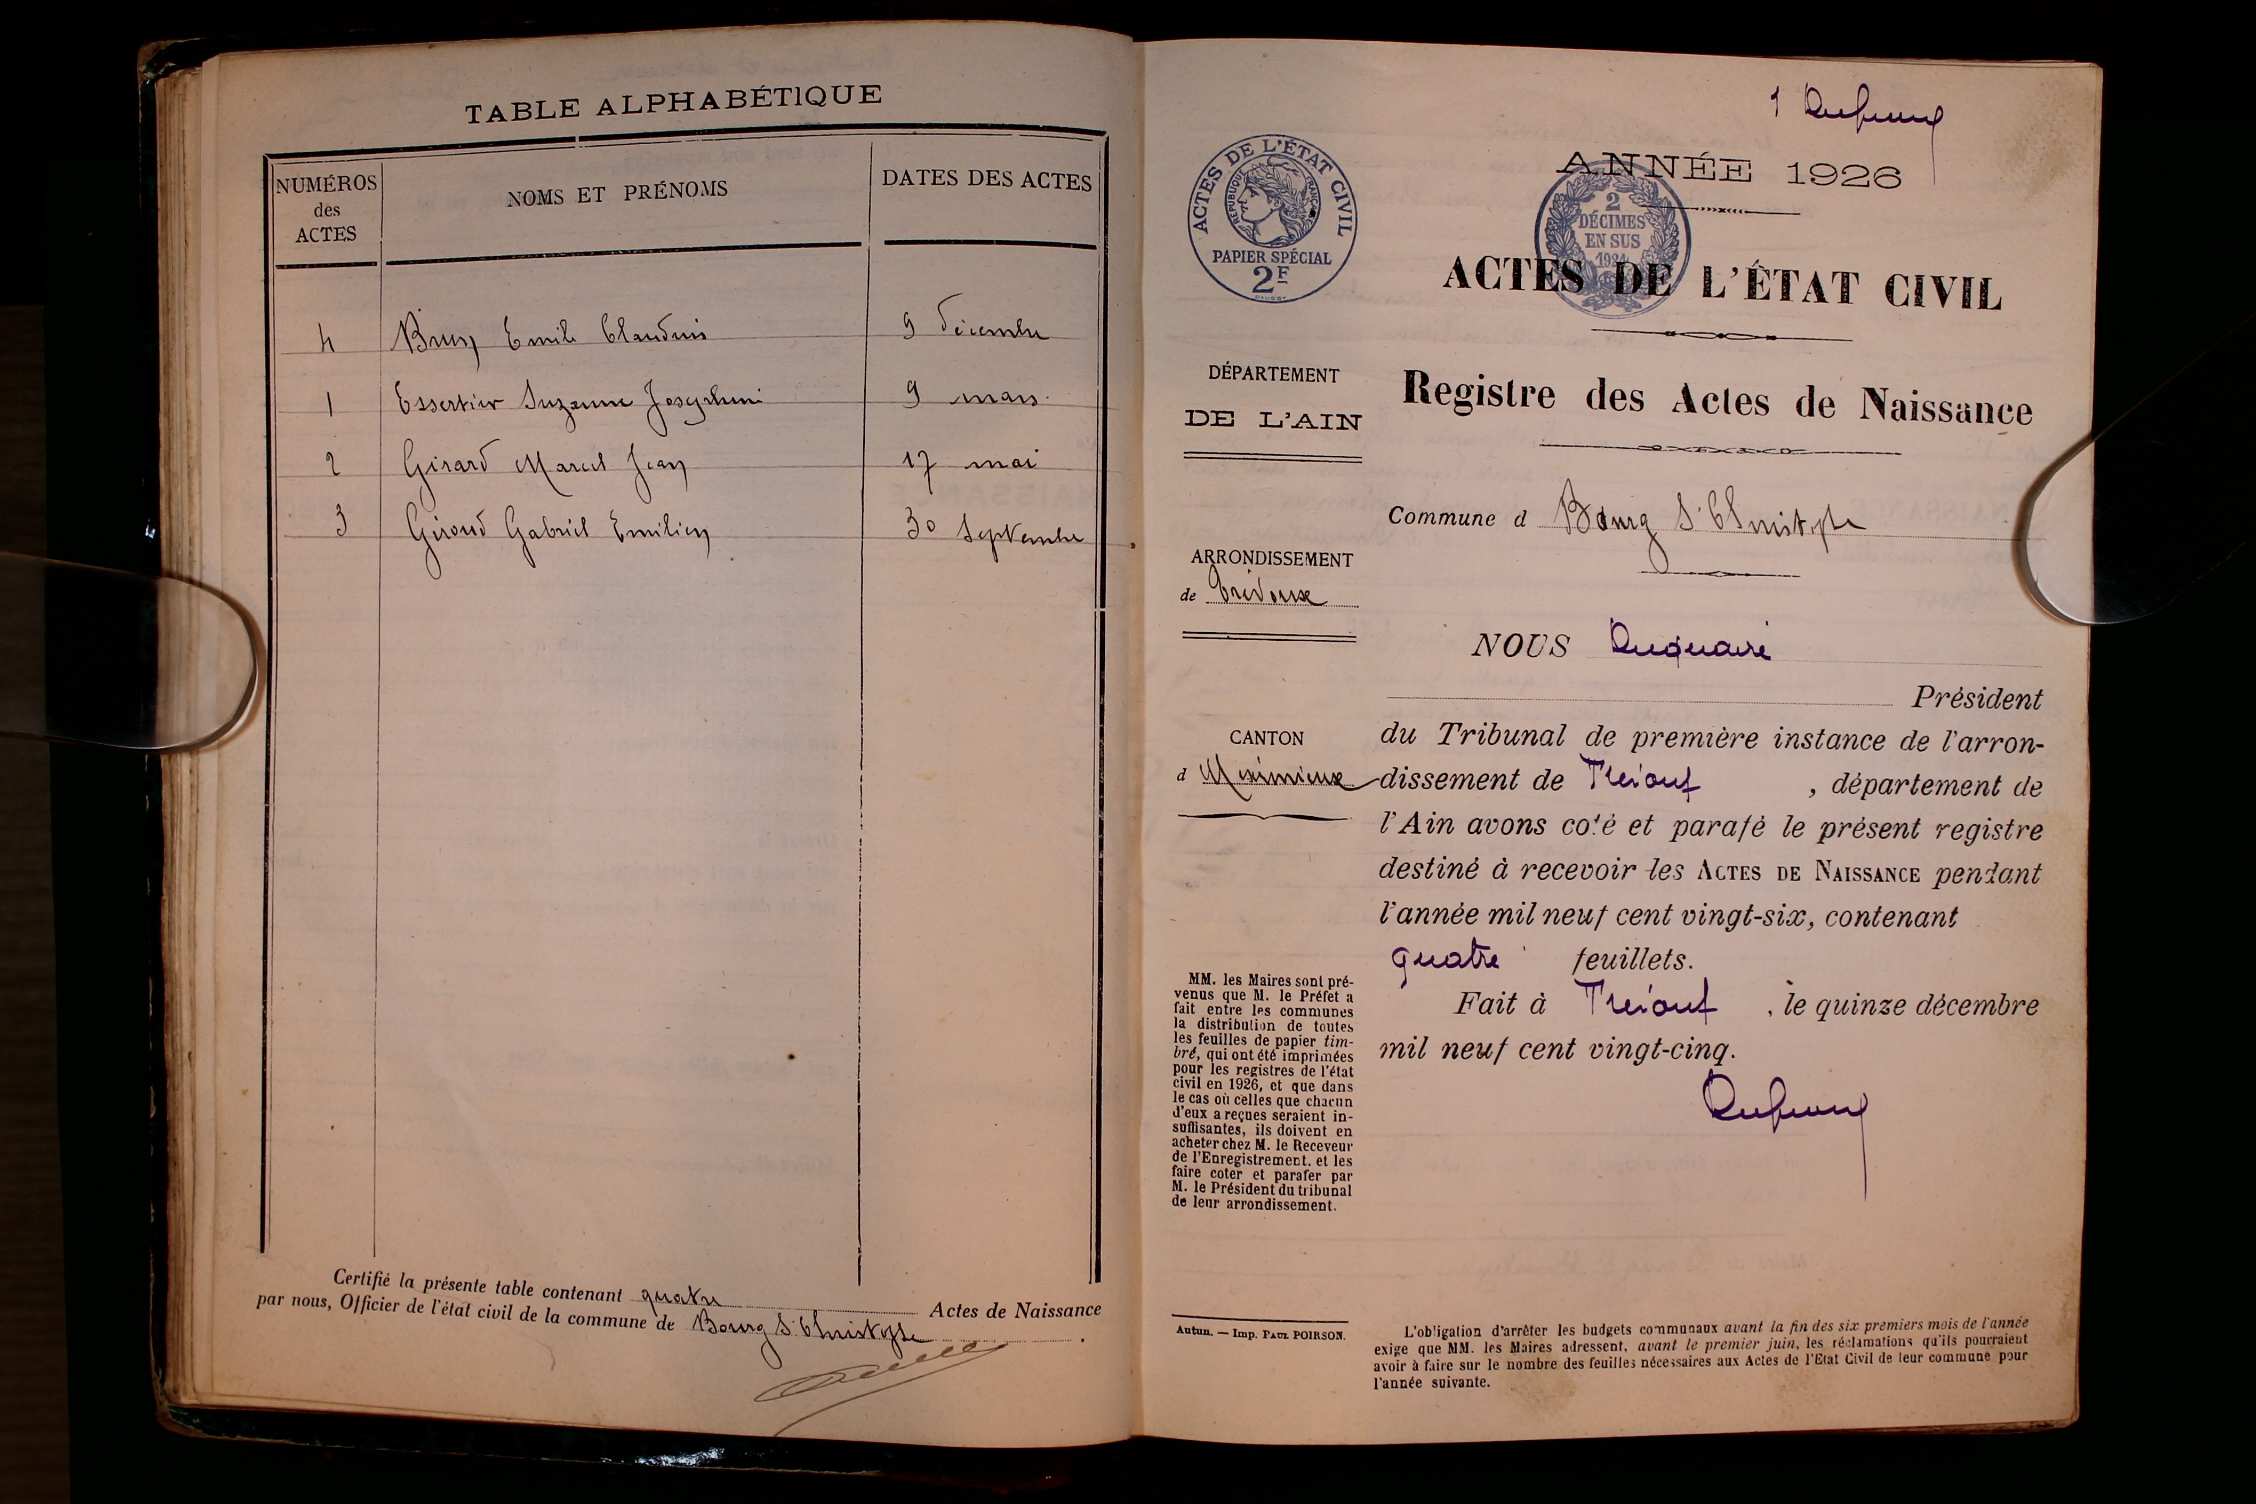 TABLE ALPHABÉTIQUE
NUMÉROS des ACTES
NOMS ET PRÉNOMS
DATES DES ACTES
4 Brun Emile Claudius 9 décembre
1 Essertier Suzanne Josephine 9 mars
2 Girard Marcel Jean 17 mai
3 Giroud Gabriel Emilien 30 Septembre
Certifié la présente table contenant quatre Actes de Naissance
par nous, Officier de l'état civil de la commune de Bourg St Christophe
1
ANNÉE 1926
ACTES DE L'ÉTAT CIVIL
RÉPUBLIQUE FRANÇAISE
PAPIER SPÉCIAL
2F
2
DÉCIMES
EN SUS
1924
ACTES DE L'ÉTAT CIVIL
DÉPARTEMENT
DE L'AIN
Registre des Actes de Naissance
Commune d Bourg St Christophe
ARRONDISSEMENT
de Trévoux
NOUS Duquaire
Président
du Tribunal de première instance de l'arron-
CANTON
d Meximieux
dissement de Trévoux, département de
l'Ain avons coté et parafé le présent registre
destiné à recevoir les ACTES DE NAISSANCE pendant
l'année mil neuf cent vingt-six, contenant
quatre feuillets.
Fait à Trévoux, le quinze décembre
mil neuf cent vingt-cinq.
MM. les Maires sont pré-
venus que M. le Préfet a
fait entre les communes
la distribution de toutes
les feuilles de papier tim-
bré, qui ont été imprimées
pour les registres de l'état
civil en 1926, et que dans
le cas où celles que chacun
d'eux a reçues seraient in-
suffisantes, ils doivent en
acheter chez M. le Receveur
de l'Enregistrement. et les
faire coter et parafer par
M. le Président du tribunal
de leur arrondissement.
Autun. — Imp. PAUL POIRSON.
L'obligation d'arrêter les budgets communaux avant la fin des six premiers mois de l'année
exige que MM. les Maires adressent, avant le premier juin, les réclamations qu'ils pourraient
avoir à faire sur le nombre des feuilles nécessaires aux Actes de l'État Civil de leur commune pour
l'année suivante.